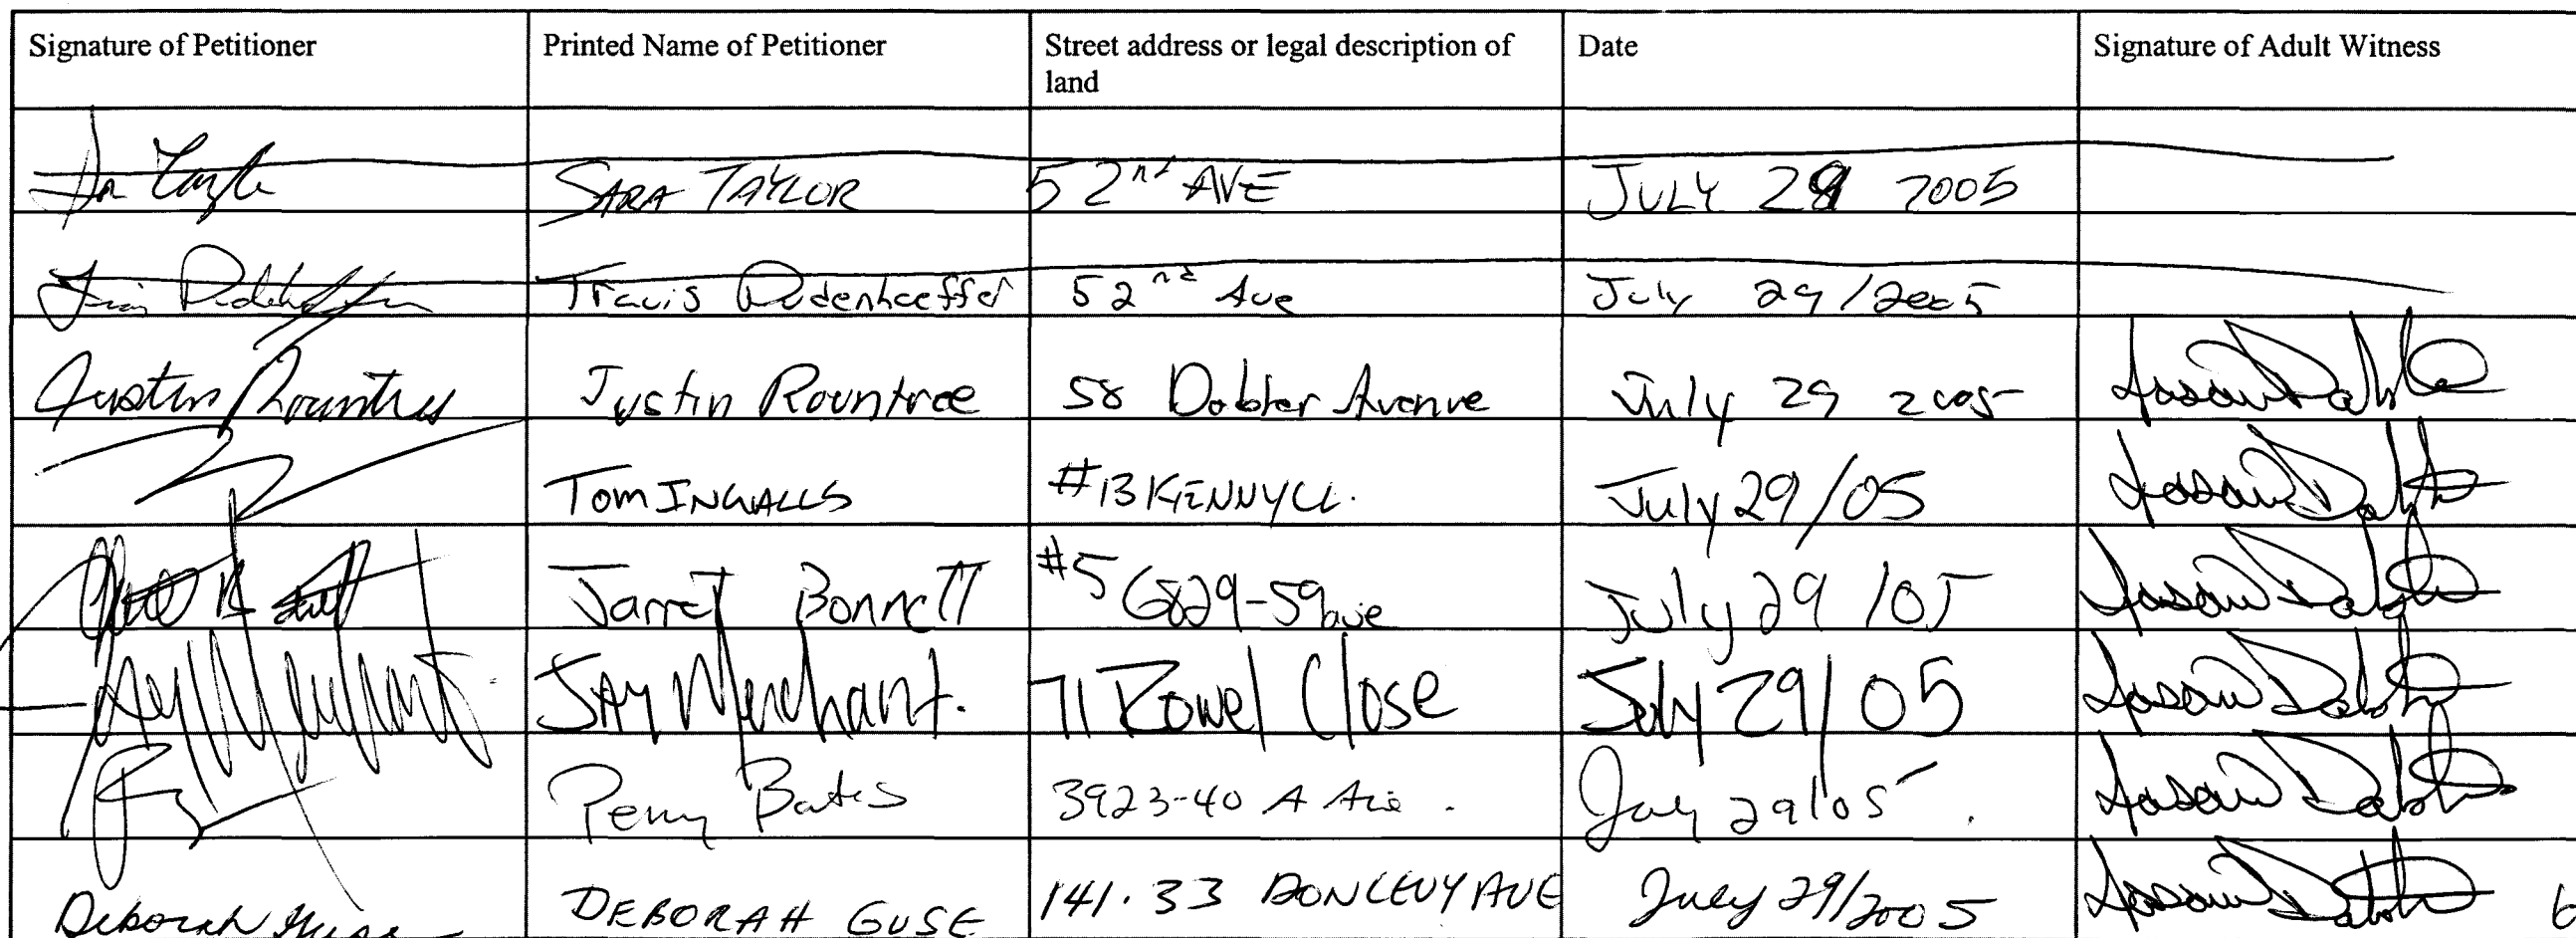 Signature of Petitioner Printed Name of Petitioner Street address or legal description of land Date Signature of Adult Witness
SARA TAYLOR 52nd AVE JULY 29 2005
Travis 52nd Ave July 29/2005
Justin Rountree Justin Rountree 58 Avenue July 29 2005 Jason
Tom INGALLS #13 KENNY CL. July 29/05 Jason
Jarret Bonnett #5 6829-59 ave July 29/05 Jason
Jay Merchant JAY Merchant. 71 Close July 29/05 Jason
Perry Bates 3923-40 A Ave. July 29/05. Jason
Deborah Guse DEBORAH GUSE 141. 33 DONLEVY AVE July 29/2005 Jason 6